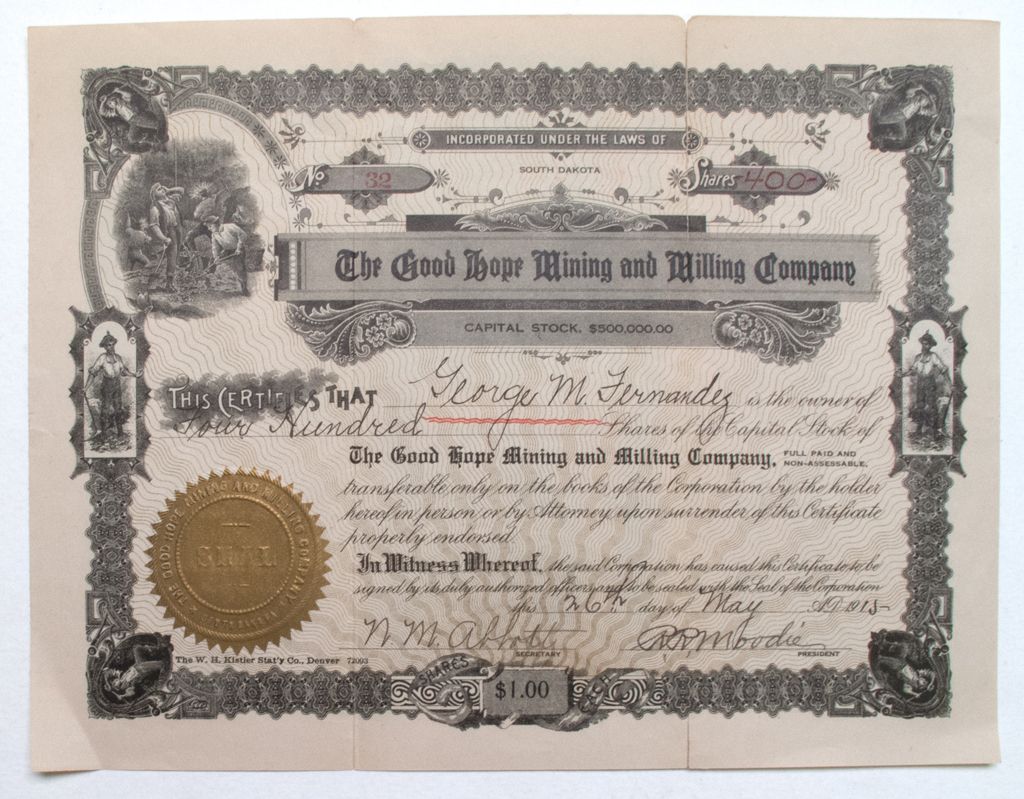 INCORPORATED UNDER THE LAWS OF
SOUTH DAKOTA
No 32
Shares 400-
The Good Hope Mining and Milling Company
CAPITAL STOCK, $500,000.00
THIS CERTIFIES THAT George M. Fernandez is the owner of
Four Hundred Shares of the Capital Stock of
The Good Hope Mining and Milling Company, FULL PAID AND NON-ASSESSABLE,
transferable only on the books of the Corporation by the holder
hereof in person or by Attorney upon surrender of this Certificate
properly endorsed.
In Witness Whereof, the said Corporation has caused this Certificate to be
signed by its duly authorized officers and to be sealed with the Seal of the Corporation
this 26th day of May A.D. 1915
THE GOOD HOPE MINING AND MILLING COMPANY
SEAL
SOUTH DAKOTA
N. M. Abbott
SECRETARY
R.R. Moodie
PRESIDENT
The W. H. Kistler Stat'y Co., Denver 72093
SHARES $1.00 EACH